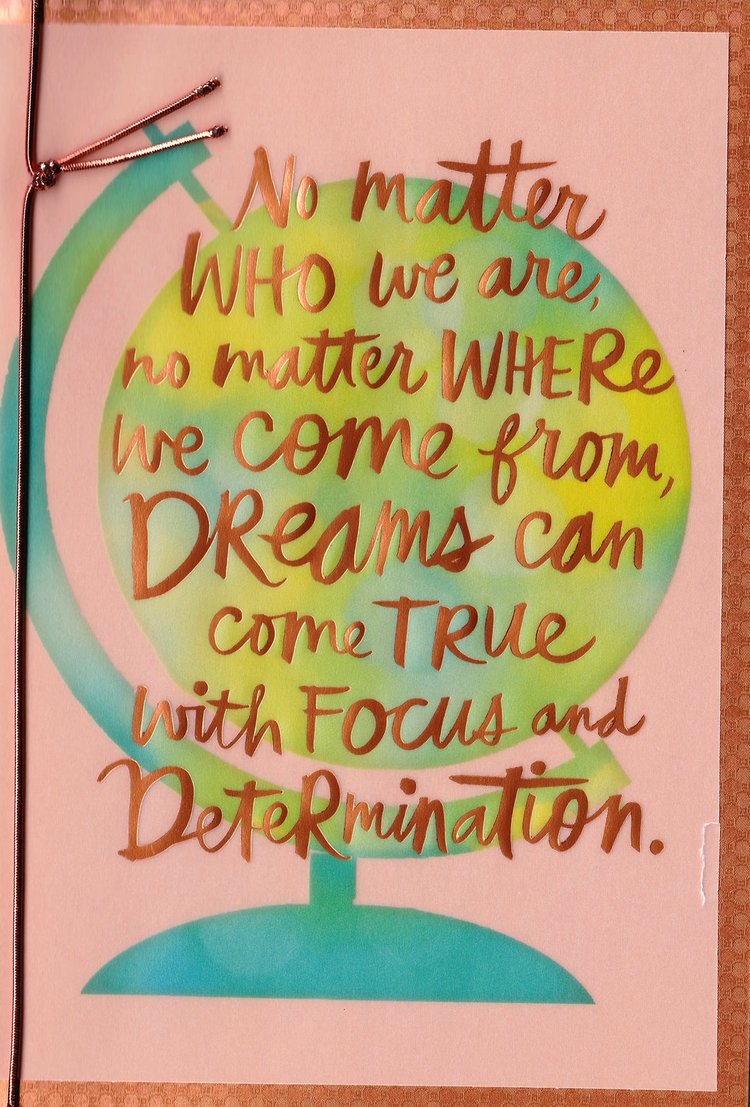 No matter
WHO we are,
no matter WHERe
we come from,
DReams can
come TRUe
with FOCUS and
DeteRmination.